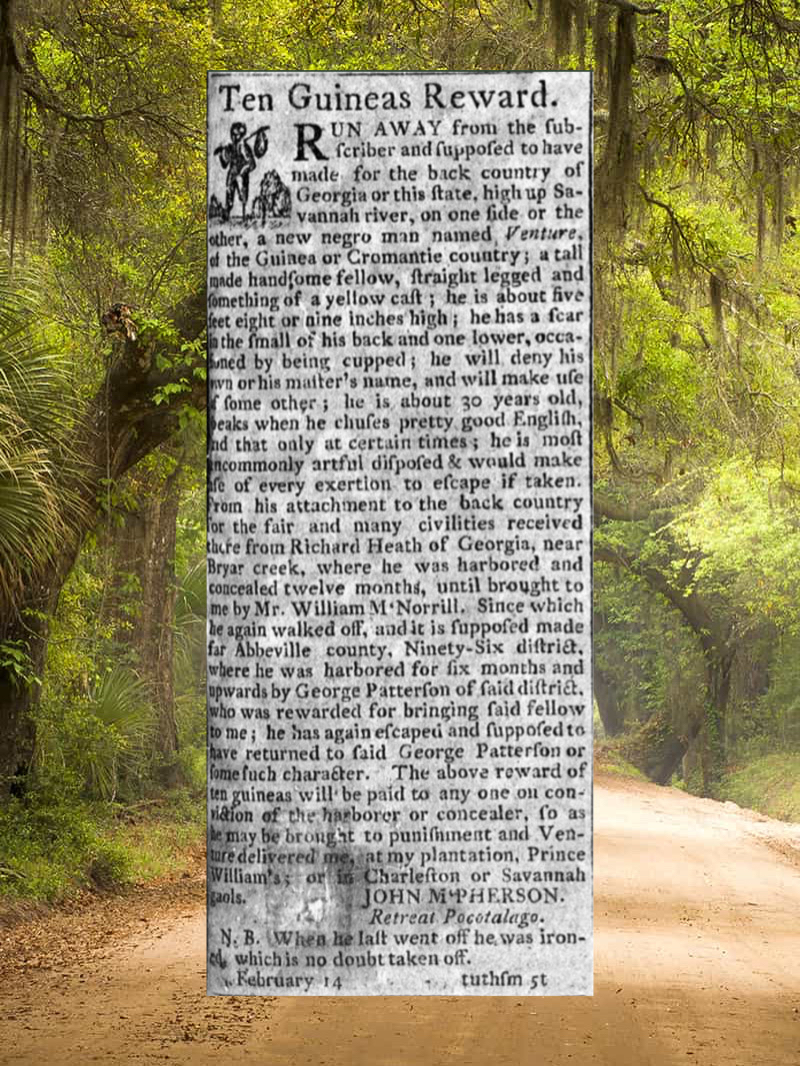 Ten Guineas Reward.
RUN AWAY from the ſub-
ſcriber and ſuppoſed to have
made for the back country of
Georgia or this ſtate, high up Sa-
vannah river, on one ſide or the
other, a new negro man named Venture,
of the Guinea or Cromantie country; a tall
made handſome fellow, ſtraight legged and
ſomething of a yellow caſt; he is about five
feet eight or nine inches high; he has a ſcar
in the ſmall of his back and one lower, occa-
ſioned by being cupped; he will deny his
own or his maſter's name, and will make uſe
of ſome other; he is about 30 years old,
ſpeaks when he chuſes pretty good Engliſh,
and that only at certain times; he is moſt
uncommonly artful diſpoſed & would make
uſe of every exertion to eſcape if taken.
From his attachment to the back country
for the fair and many civilities received
there from Richard Heath of Georgia, near
Bryar creek, where he was harbored and
concealed twelve months, until brought to
me by Mr. William M'Norrill. Since which
he again walked off, and it is ſuppoſed made
far Abbeville county, Ninety-Six diſtrict,
where he was harbored for ſix months and
upwards by George Patterſon of ſaid diſtrict,
who was rewarded for bringing ſaid fellow
to me; he has again eſcaped and ſuppoſed to
have returned to ſaid George Patterſon or
ſome ſuch character. The above reward of
ten guineas will be paid to any one on con-
viction of the harborer or concealer, ſo as
he may be brought to puniſhment and Ven-
ture delivered me, at my plantation, Prince
William's; or in Charleſton or Savannah
gaols. JOHN M'PHERSON.
Retreat Pocotalago.
N. B. When he laſt went off he was iron-
ed, which is no doubt taken off.
February 14 tuthſm 5t